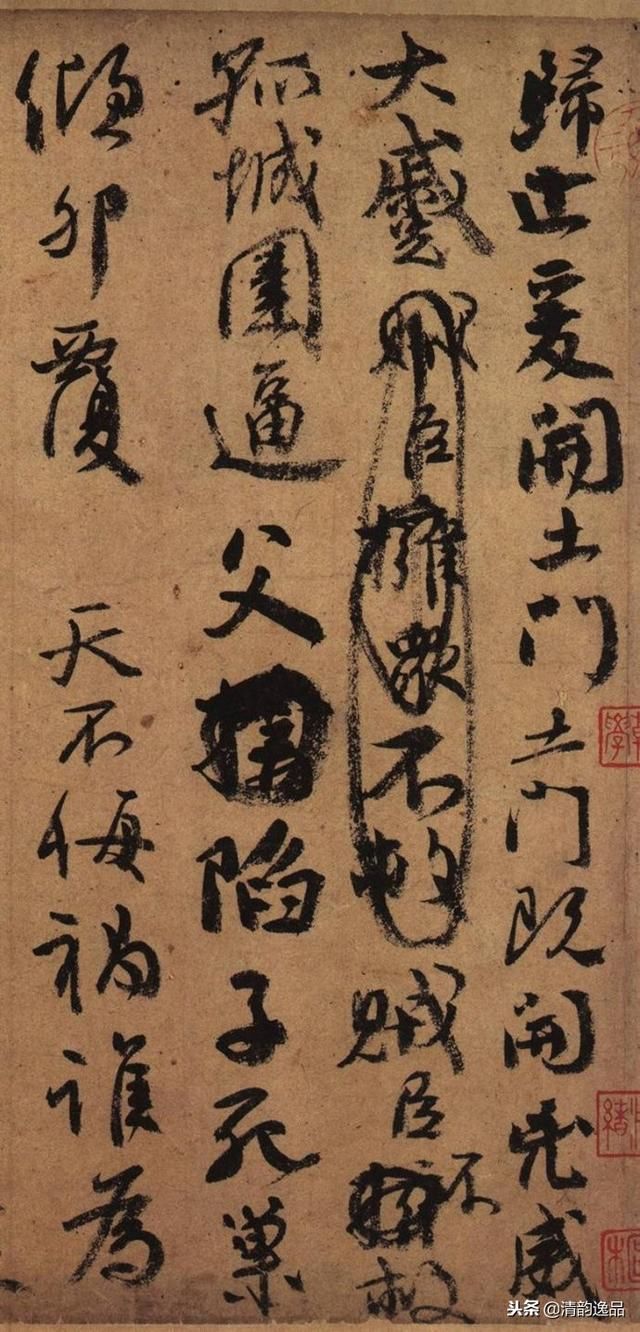 歸止爰開土門土門既開兇威
大蹙賊臣擁衆不救賊臣不救
孤城圍逼父陷子死巢
傾卵覆 天不悔禍誰為
头条 @清韵逸品